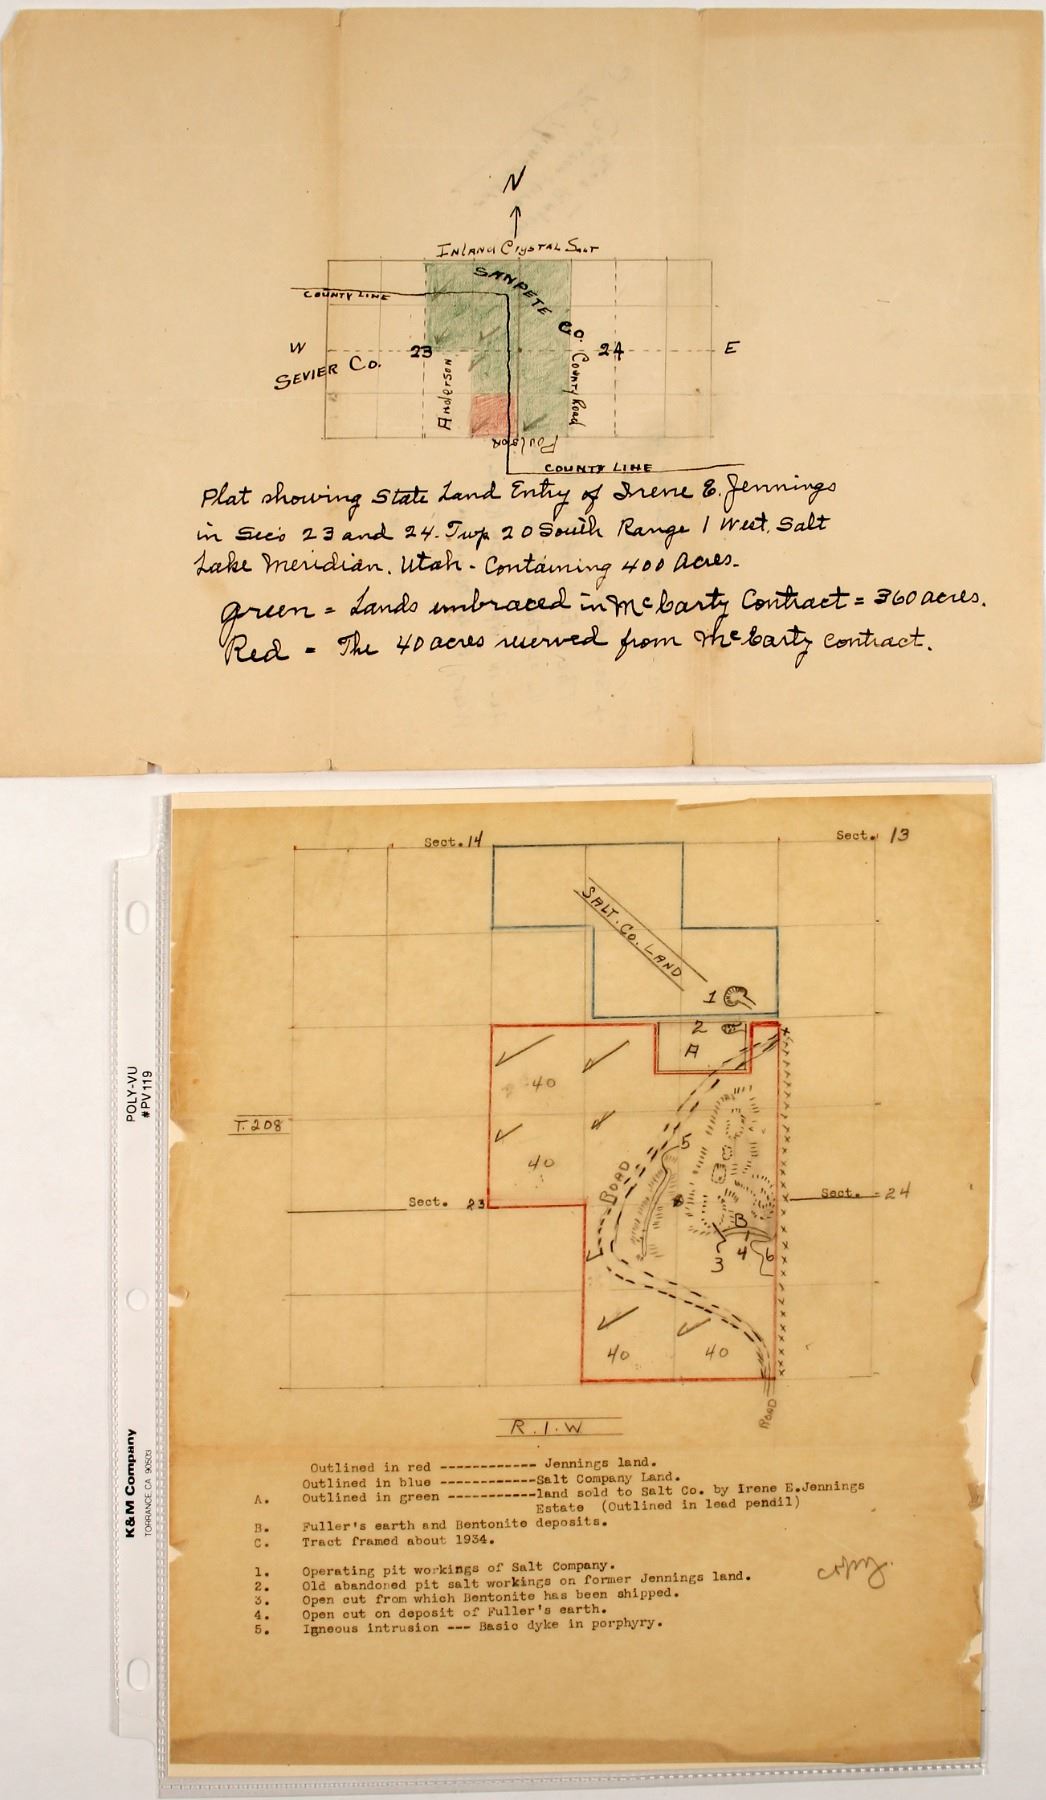 N
Inland Crystal Salt
SANPETE Co.
COUNTY LINE
W
23
24
E
SEVIER Co.
Anderson
County Road
Poulson
COUNTY LINE
Plat showing State Land Entry of Irene E. Jennings
in Sec's 23 and 24. Twp 20 South Range 1 West, Salt
Lake Meridian, Utah - Containing 400 Acres.
Green = Lands embraced in McCarty Contract = 360 acres.
Red = The 40 acres reserved from McCarty Contract.
Sect. 14
Sect. 13
SALT. CO. LAND
1
2
A
40
T. 20S
40
5
ROAD
Sect. 23
Sect. - 24
B
3
4
6
40
40
ROAD
R. 1. W
Outlined in red ------------ Jennings land.
Outlined in blue ------------Salt Company Land.
A. Outlined in green -----------land sold to Salt Co. by Irene E.Jennings
Estate (Outlined in lead pendil)
B. Fuller's earth and Bentonite deposits.
C. Tract framed about 1934.
1. Operating pit workings of Salt Company.
2. Old abandoned pit salt workings on former Jennings land.
3. Open cut from which Bentonite has been shipped.
4. Open cut on deposit of Fuller's earth.
5. Igneous intrusion --- Basic dyke in porphyry.
copy.
POLY-VU
#PV119
K&M Company
TORRANCE, CA 90503